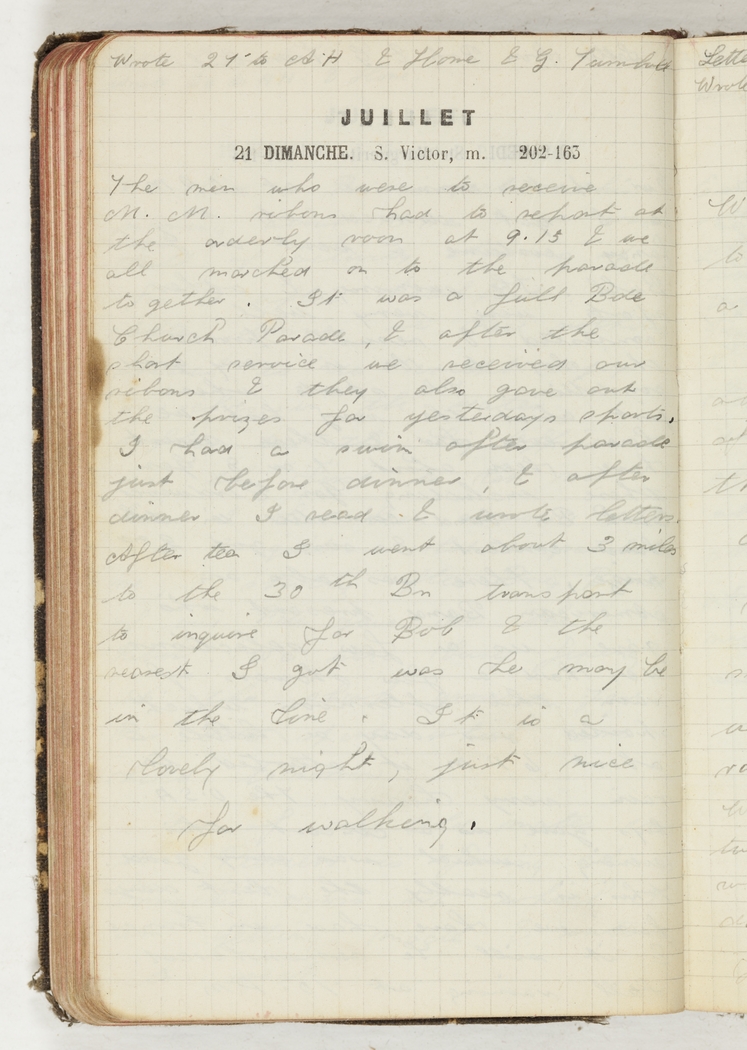 Wrote 21st to A.H & Home & G. Turnbull
JUILLET
21 DIMANCHE. S. Victor, m. 202-163
The men who were to receive
M. M. ribons had to report at
the orderly room at 9.15 & we
all marched on to the parade
together. It was a full Bde
Church Parade, & after the
short service we received our
ribons & they also gave out
the prizes for yesterdays sports.
I had a swim after parade
just before dinner, & after
dinner I read & wrote letters.
After tea I went about 3 miles
to the 30th Bn transport
to inquire for Bob & the
nearest I got was he may be
in the line. It is a
lovely night, just nice
for walking.
Lette
Wrote